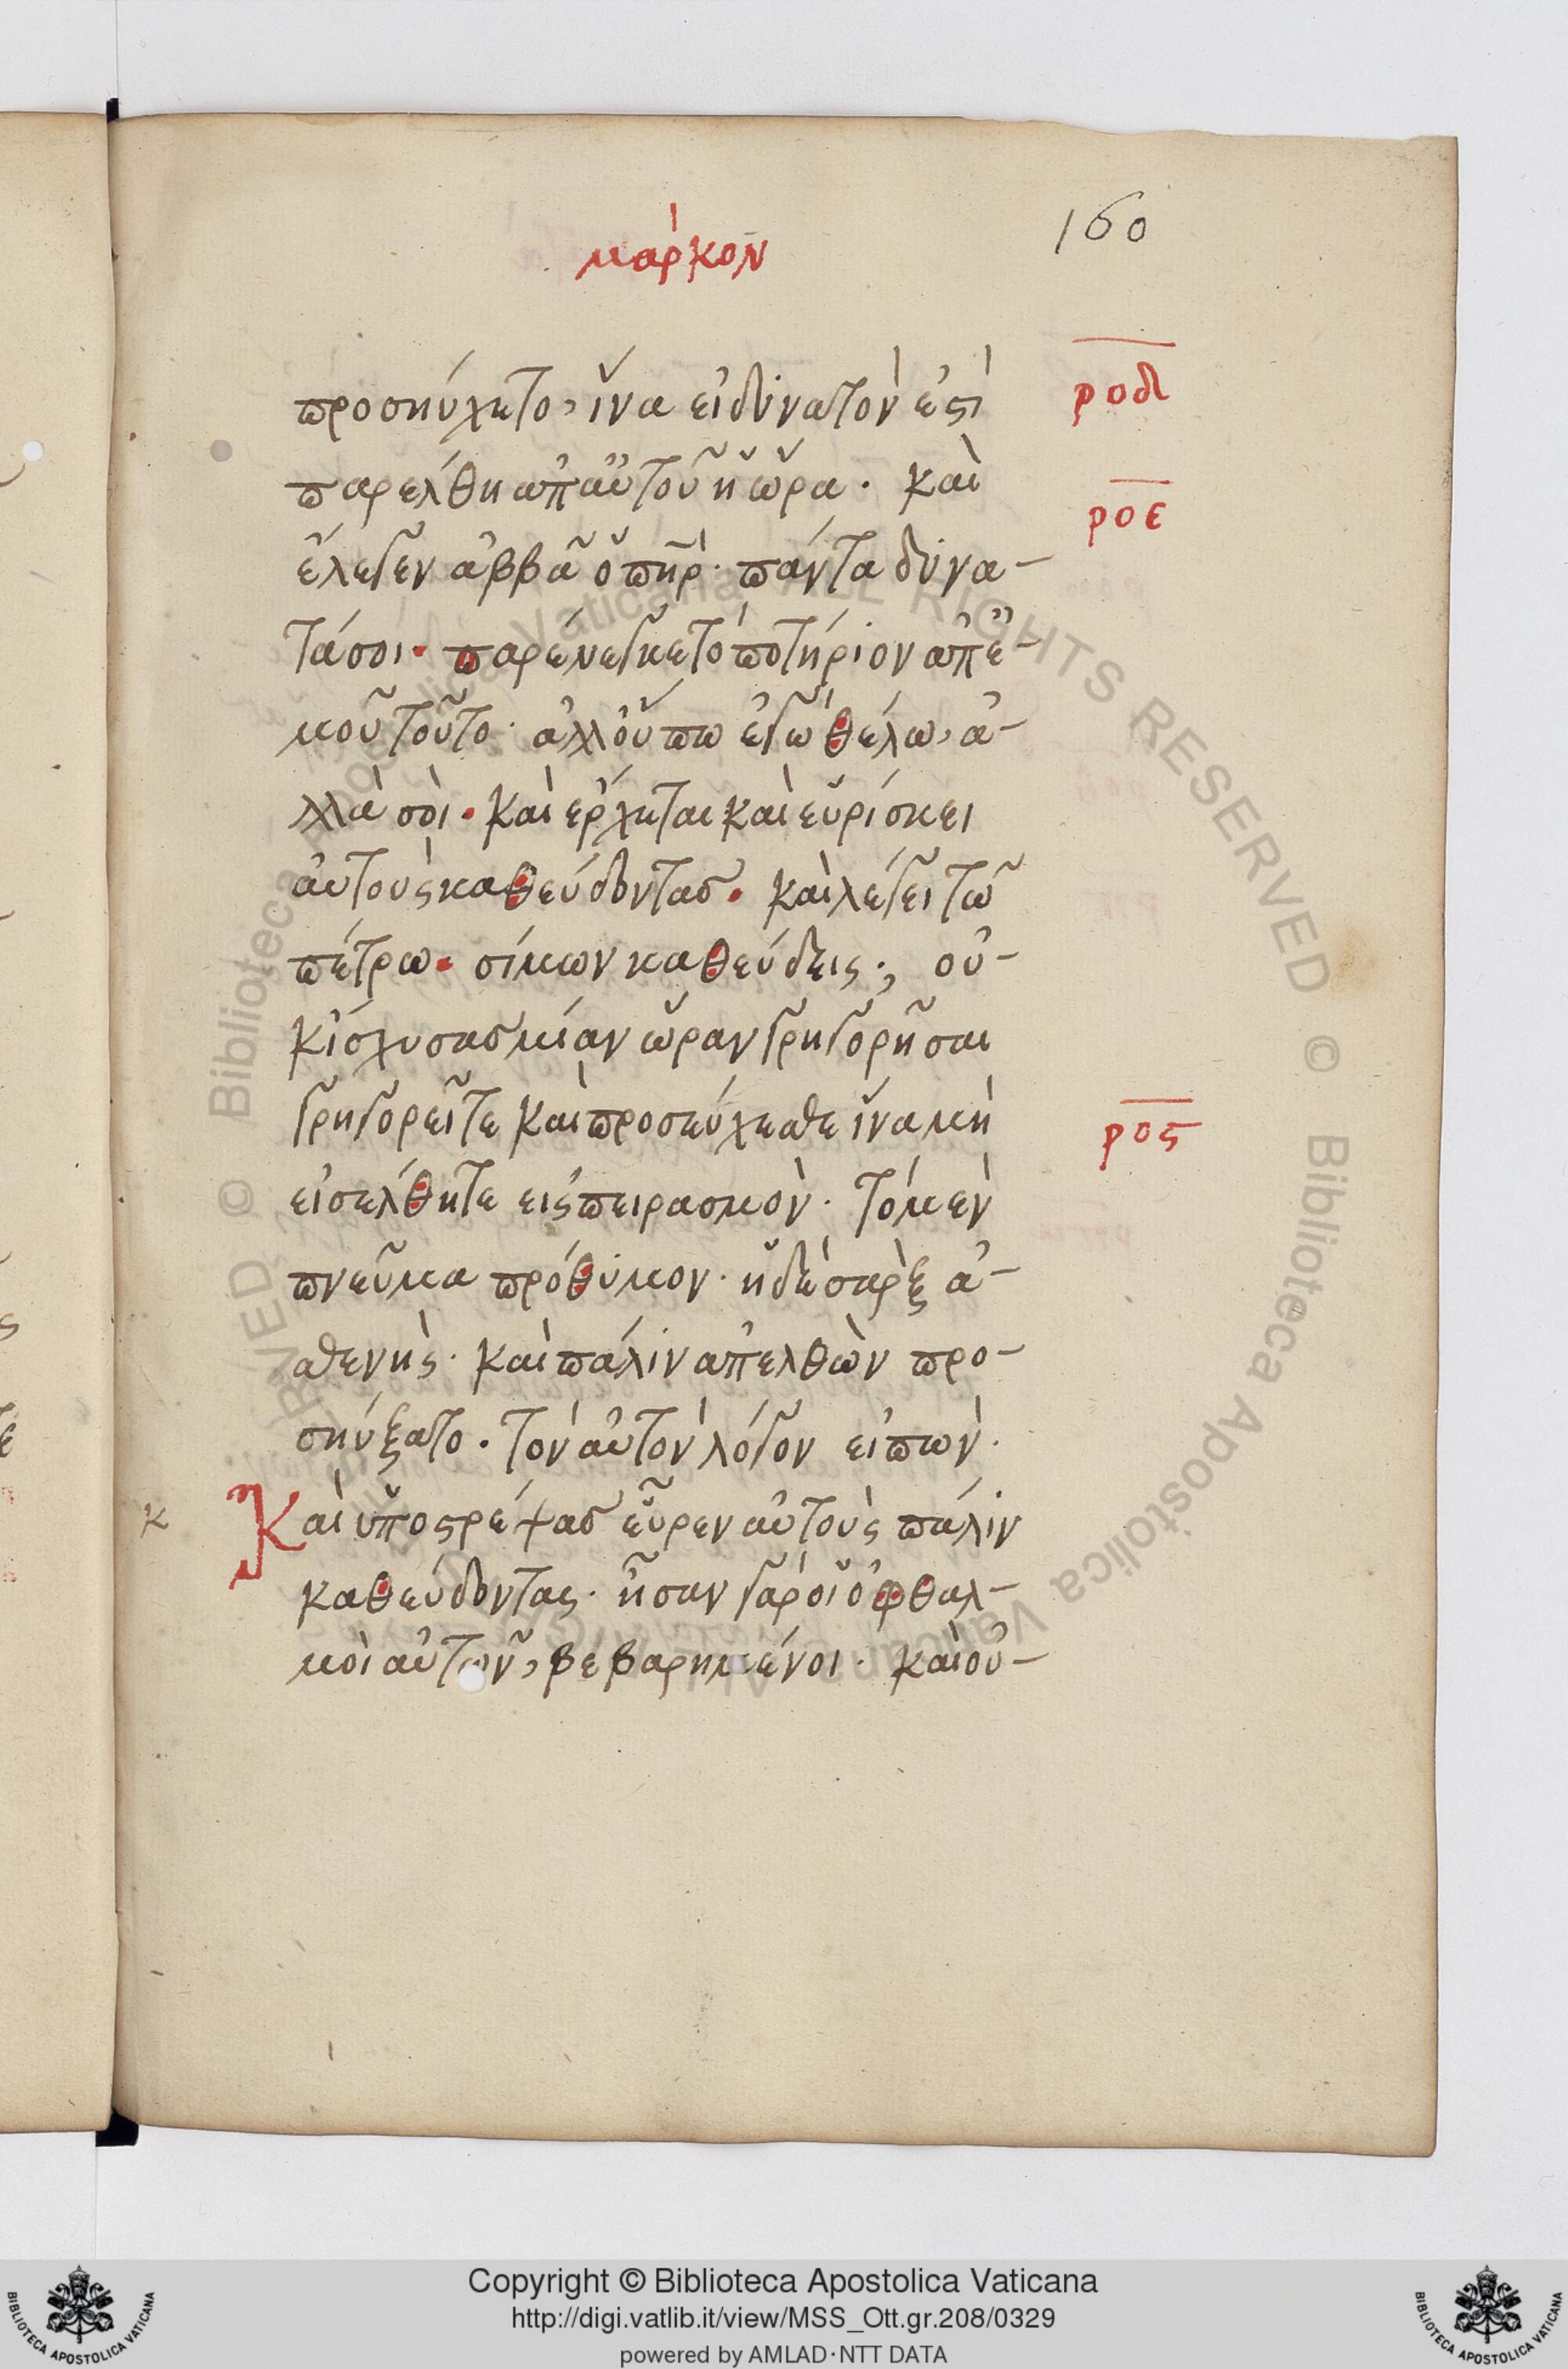 160
μάρκον
προσηύχετο, ἵνα εἰ δύνατὸν ἐςὶ
ροδ
παρέλθη ἀπ' αὐτοῦ ἡ ὥρα· καὶ
ροε
ἔλεγεν ἀββᾶ ὁ πηρ· πάντα δύνα-
τά σοι· παρένεγκε τὸ ποτήριον ἀπ' ἐ-
μοῦ τοῦτο· ἀλλ' οὔ πω ἐγὼ θέλω, ἀ-
λλὰ σοὶ· καὶ ἔρχεται καὶ εὑρίσκει
αὐτοὺς καθεύδοντασ· καὶ λέγει τῶ
πέτρω· σίμων καθεύδεις·; οὐ-
κ ἴσχυσασ μίαν ὥραν γρηγορῆσαι
γρηγορεῖτε καὶ προσεύχεσθε ἵνα μὴ
ρος
εἰσέλθητε εἰς πειρασμὸν· τὸ μὲν
πνεῦμα πρόθυμον· ἡ δὲ σὰρξ ἀ-
σθενὴς· καὶ πάλιν ἀπελθὼν προ-
σηύξατο· τὸν αὐτὸν λόγον εἰπὼν·
κ
Καὶ ὑποςρέψασ εὗρεν αὐτοὺς πάλιν
καθεύδοντας· ἦσαν γὰρ οἱ ὀφθαλ-
μοὶ αὐτῶν, βεβαρημένοι· καὶ οὐ-
© Biblioteca Apostolica Vaticana ALL RIGHTS RESERVED © Biblioteca Apostolica Vaticana ALL RIGHTS RESERVED
Copyright © Biblioteca Apostolica Vaticana
http://digi.vatlib.it/view/MSS_Ott.gr.208/0329
powered by AMLAD·NTT DATA
BIBLIOTECA APOSTOLICA VATICANA
BIBLIOTECA APOSTOLICA VATICANA